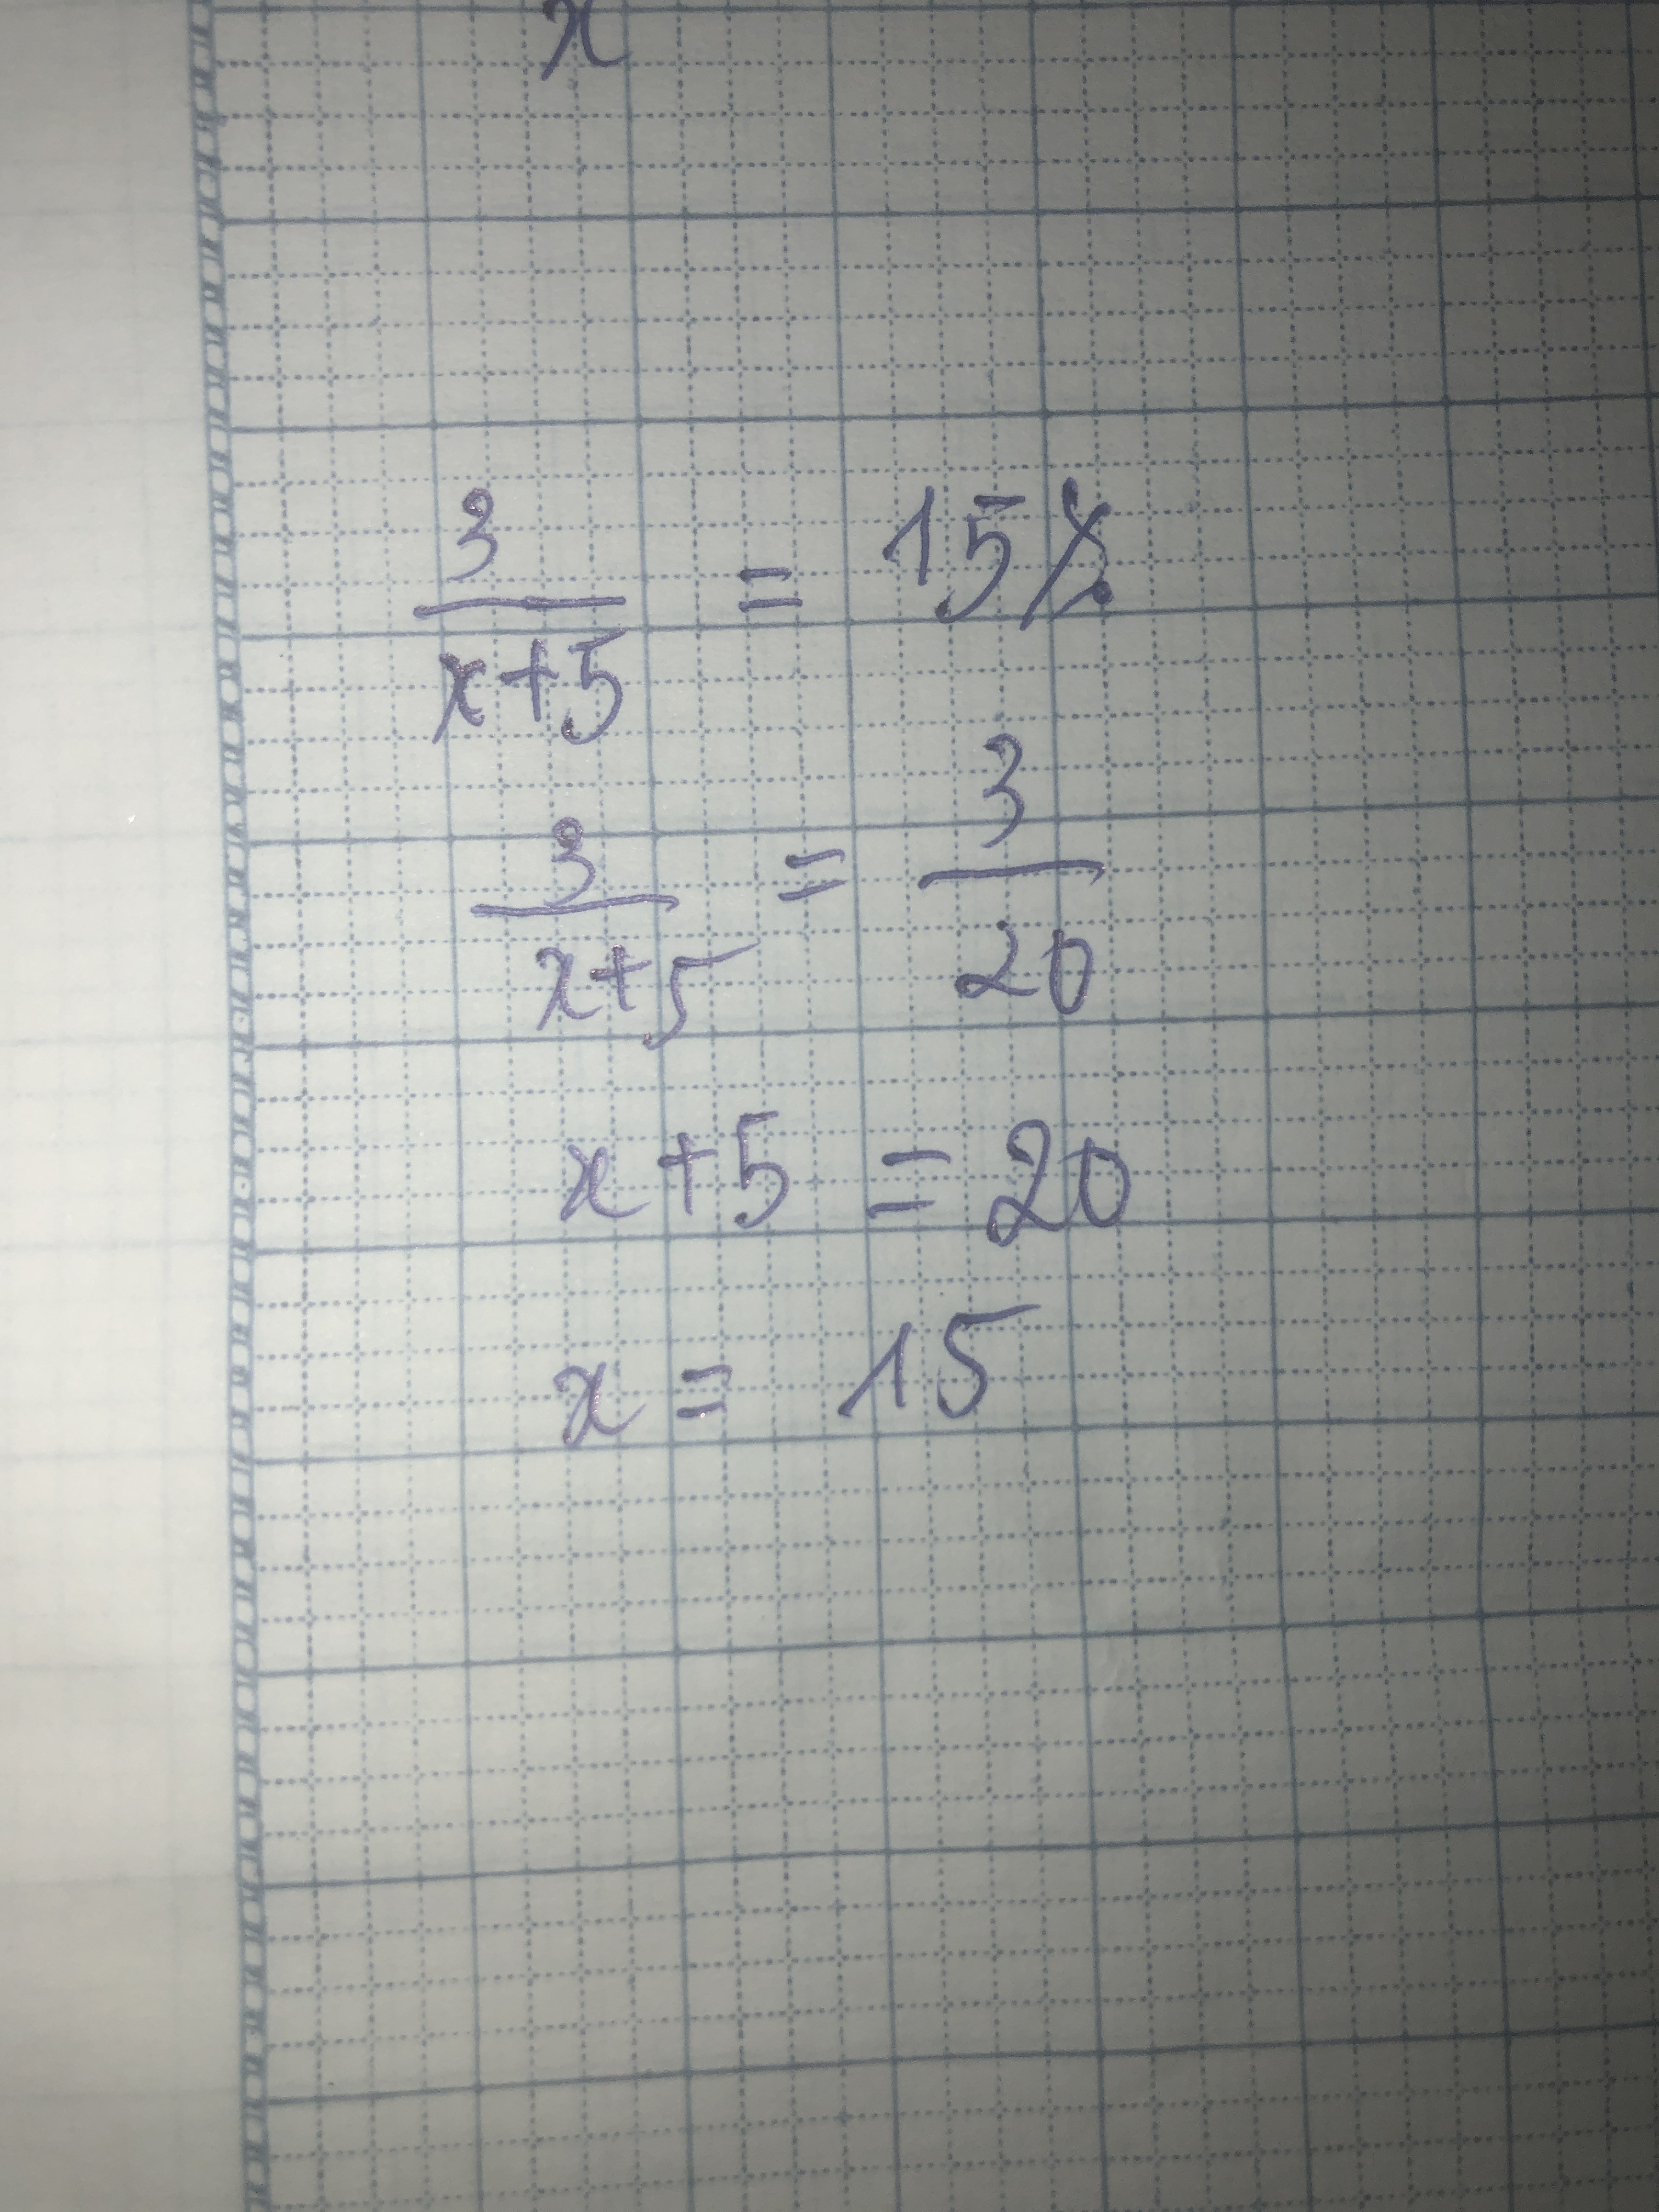 x
3/(x+5) = 15%
3/(x+5) = 3/20
x+5 = 20
x = 15